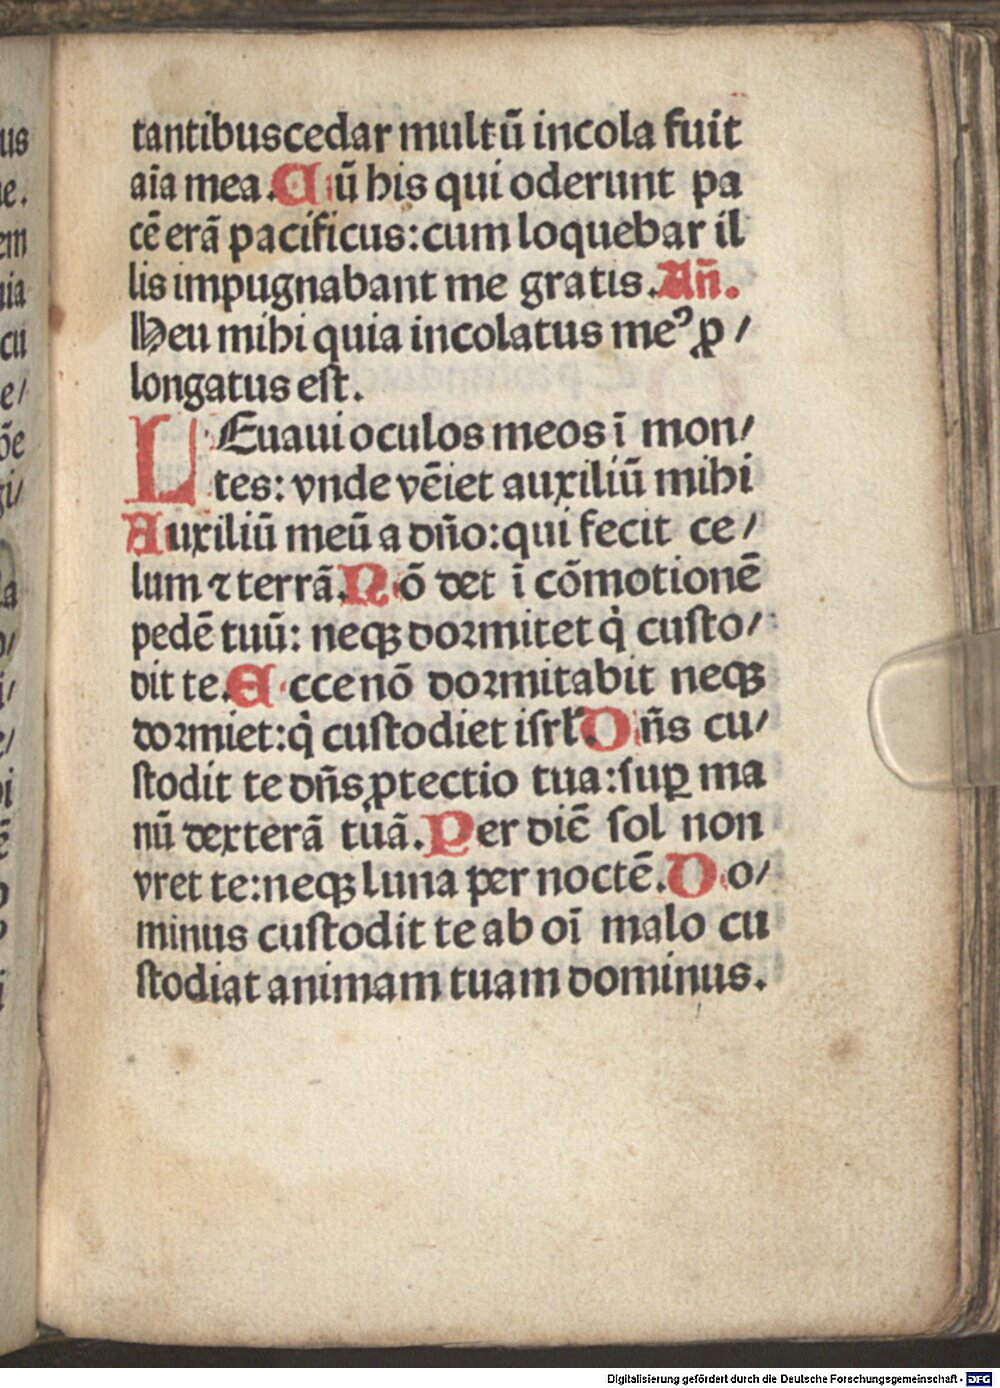 tantibuscedar multū incola fuit
aīa mea. Cū his qui oderunt pa
cē erā pacificus: cum loquebar il
lis impugnabant me gratis. Añ.
Heu mihi quia incolatus meꝰ ꝓ/
longatus est.
LEuaui oculos meos ī mon/
tes: vnde vēiet auxiliū mihi
Auxiliū meū a dño: qui fecit ce/
lum ⁊ terrā. Nō det ī cōmotionē
pedē tuū: neqꝫ dormitet q̇ custo/
dit te. Ecce nō dormitabit neqꝫ
dormiet: q̇ custodiet isrl'. Dñs cu/
stodit te dñs ꝓtectio tua: suꝑ ma
nū dexterā tuā. Per diē sol non
vret te: neqꝫ luna per noctē. Do/
minus custodit te ab oī malo cu
stodiat animam tuam dominus.
Digitalisierung gefördert durch die Deutsche Forschungsgemeinschaft - DFG